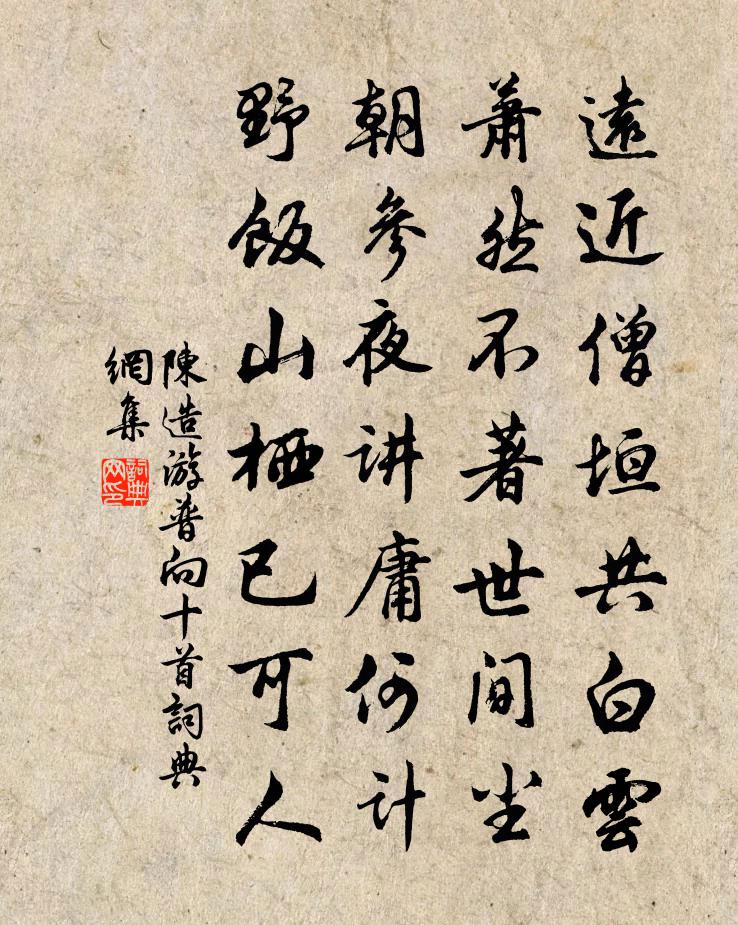 遠近僧垣共白雲
蕭然不著世间尘
朝參夜讲庸何计
野飯山栖已可人
陳造游普向十首詞典
網集
詞典
网印